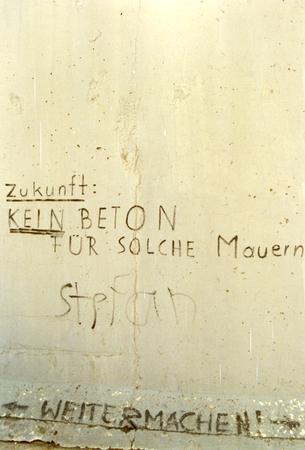 Zukunft:
KEIN BETON
FÜR SOLCHE Mauern
Stefan
← WEITERMACHEN! →